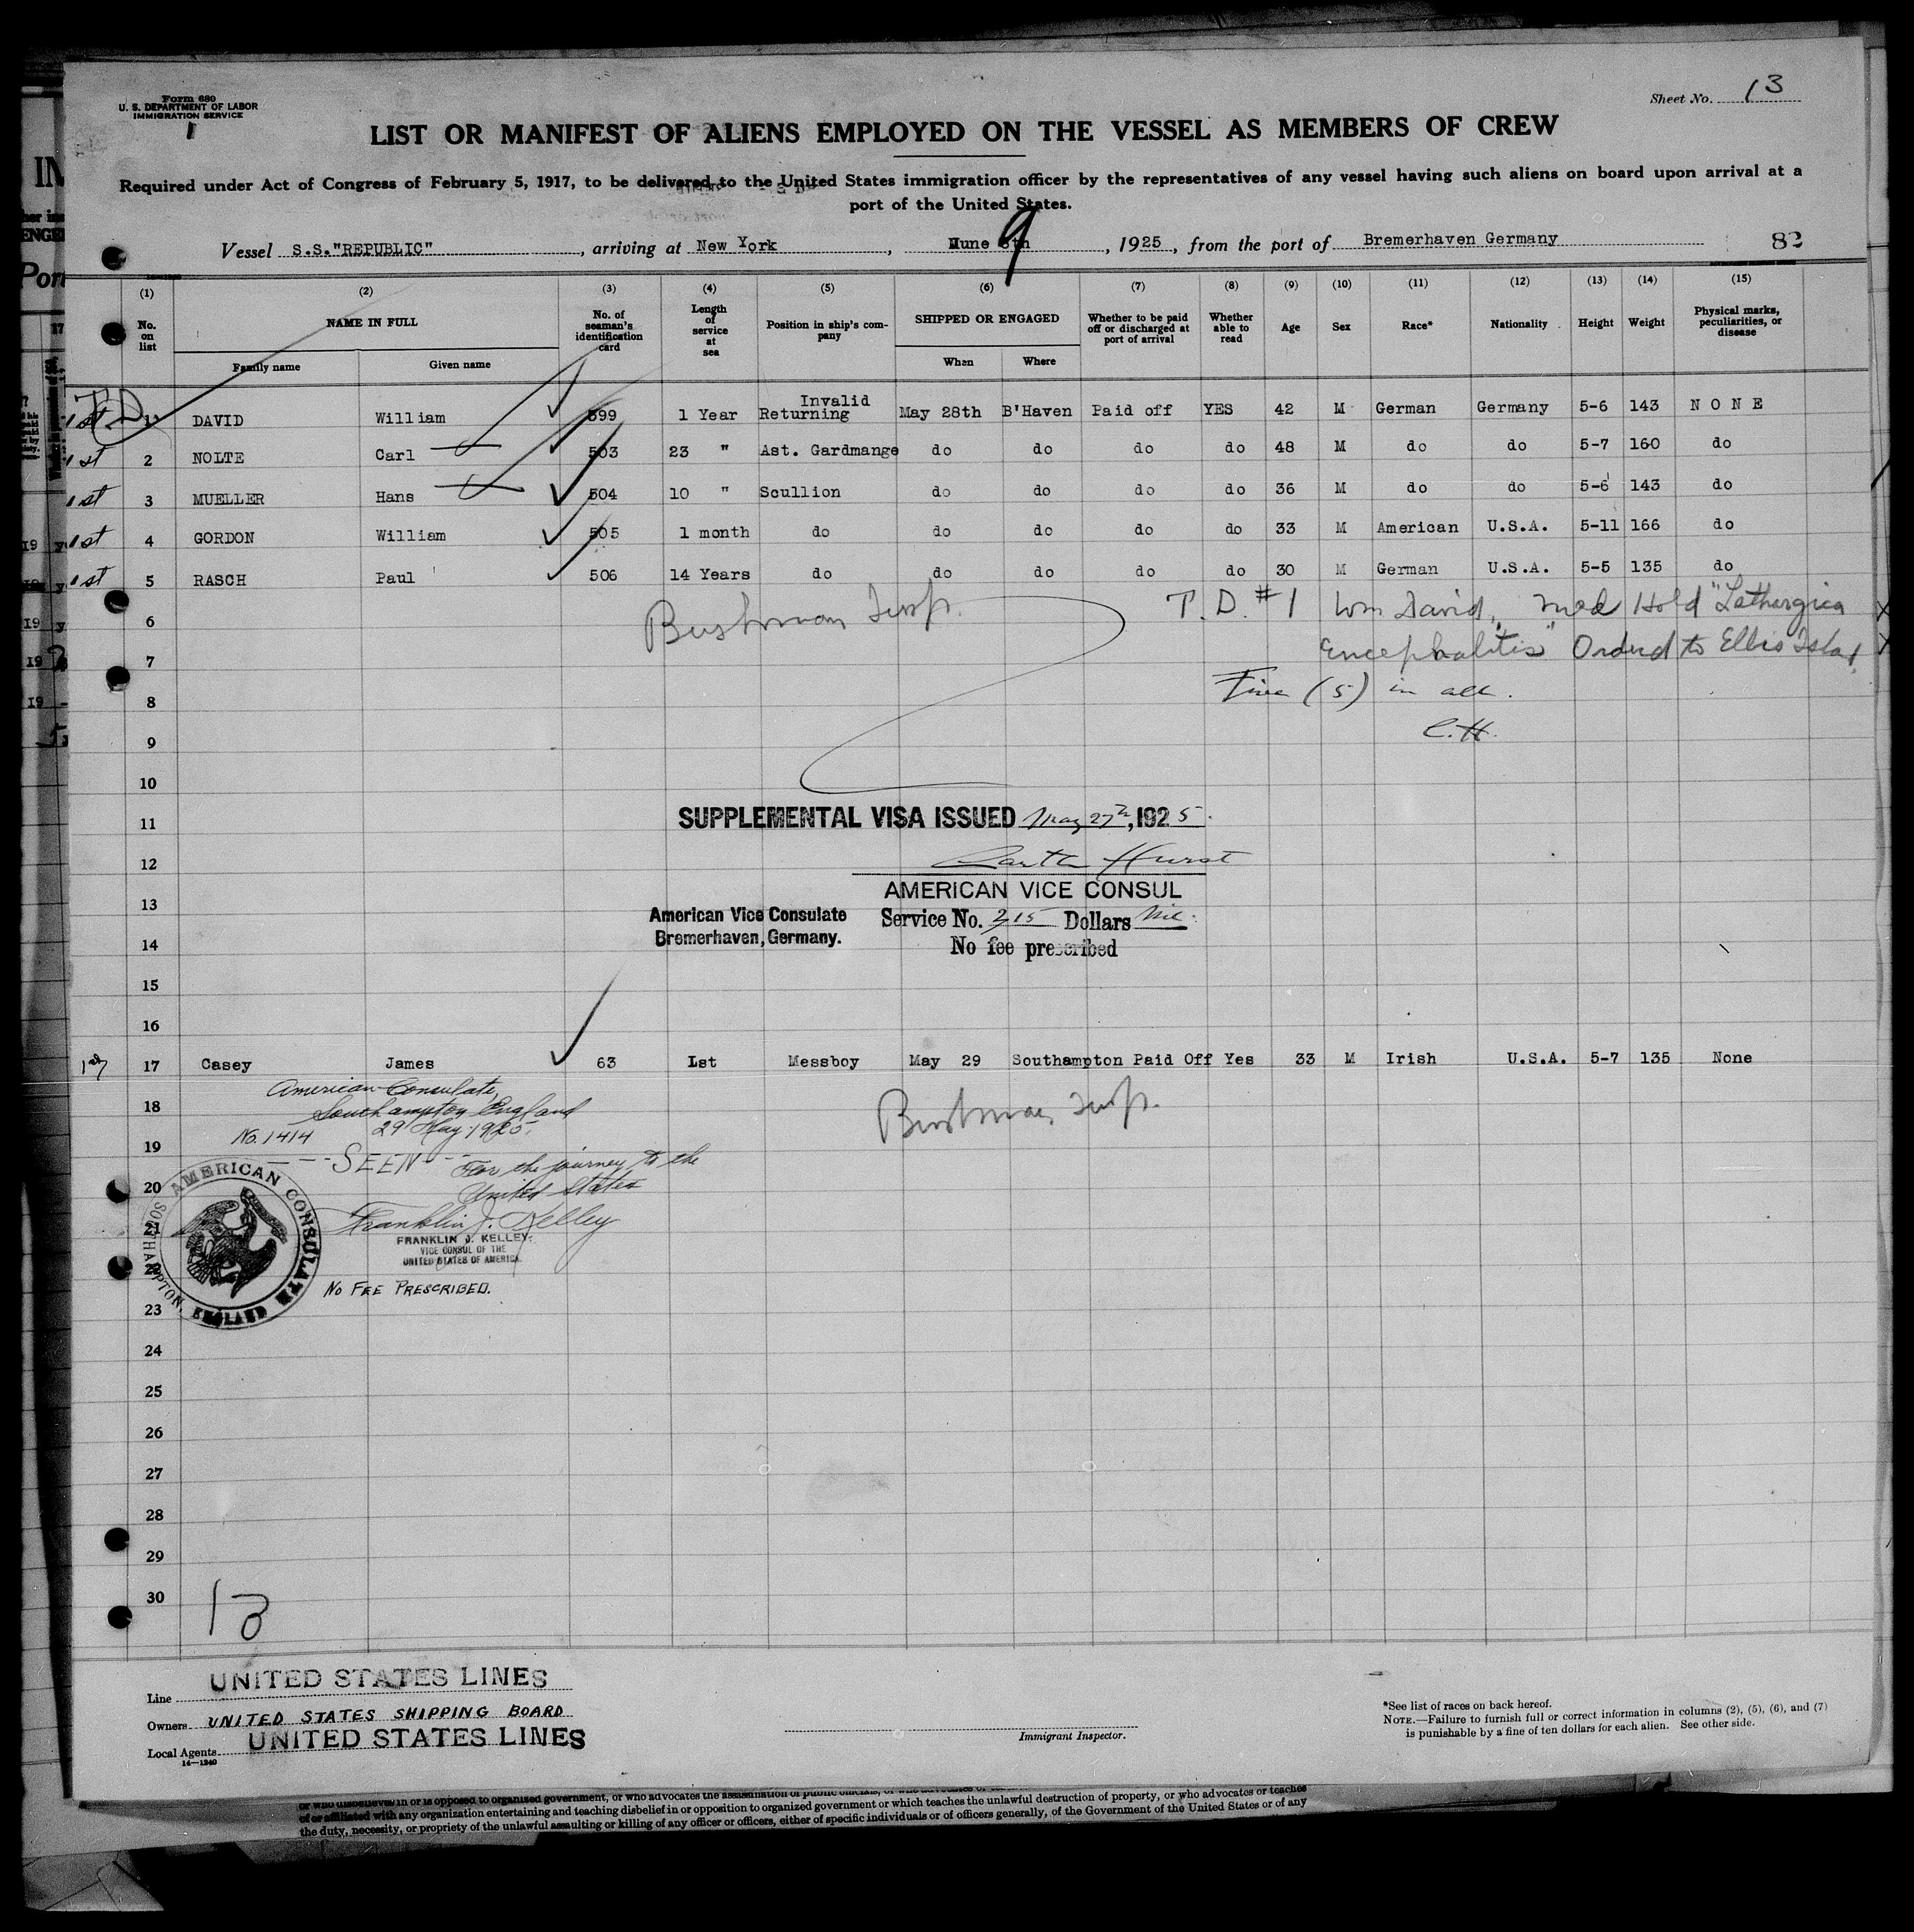 Form 680
U. S. DEPARTMENT OF LABOR
IMMIGRATION SERVICE
1
Sheet No. 13
LIST OR MANIFEST OF ALIENS EMPLOYED ON THE VESSEL AS MEMBERS OF CREW
Required under Act of Congress of February 5, 1917, to be delivered to the United States immigration officer by the representatives of any vessel having such aliens on board upon arrival at a
port of the United States.
Vessel S.S."REPUBLIC", arriving at New York, June 8th 9, 1925, from the port of Bremerhaven Germany 82
(1) (2) (3) (4) (5) (6) (7) (8) (9) (10) (11) (12) (13) (14) (15)
No. on list NAME IN FULL Family name Given name No. of seaman's identification card Length of service at sea Position in ship's company SHIPPED OR ENGAGED When Where Whether to be paid off or discharged at port of arrival Whether able to read Age Sex Race* Nationality Height Weight Physical marks, peculiarities, or disease
1st T.D. 1 DAVID William 599 1 Year Invalid Returning May 28th B'Haven Paid off YES 42 M German Germany 5-6 143 NONE
1st 2 NOLTE Carl 503 23 " Ast. Gardmange do do do do 48 M do do 5-7 160 do
1st 3 MUELLER Hans 504 10 " Scullion do do do do 36 M do do 5-6 143 do
1st 4 GORDON William 505 1 month do do do do do 33 M American U.S.A. 5-11 166 do
1st 5 RASCH Paul 506 14 Years do do do do do 30 M German U.S.A. 5-5 135 do
6 Bushman Insp. T. D. #1 Wm David, Med Hold "Lethargica
7 Encephalitis" Orderd to Ellis Island
8 Five (5) in all.
9 C.H.
10
11 SUPPLEMENTAL VISA ISSUED May 27th, 1925.
12 Hurst
AMERICAN VICE CONSUL
13 American Vice Consulate Service No. 215 Dollars Nil.
14 Bremerhaven, Germany. No fee prescribed
15
16
1st 17 Casey James 63 Lst Messboy May 29 Southampton Paid Off Yes 33 M Irish U.S.A. 5-7 135 None
American Consulate,
18 Southampton England Bushman Insp.
No. 1414 29 May 1925.
19
--- SEEN --- For the journey to the
20 United States
21 Franklin J. Kelley
FRANKLIN J. KELLEY.
VICE CONSUL OF THE
22 UNITED STATES OF AMERICA.
NO FEE PRESCRIBED.
AMERICAN CONSULATE SOUTHAMPTON, ENGLAND
23
24
25
26
27
28
29
30
13
Line UNITED STATES LINES
Owners UNITED STATES SHIPPING BOARD
Local Agents UNITED STATES LINES
14—1240
Immigrant Inspector.
*See list of races on back hereof.
NOTE.—Failure to furnish full or correct information in columns (2), (5), (6), and (7)
is punishable by a fine of ten dollars for each alien. See other side.
or who disbelieves in or is opposed to organized government, or who advocates the assassination of public officials,
of or affiliated with any organization entertaining and teaching disbelief in or opposition to organized government or which teaches the unlawful destruction of property, or who advocates or teaches
the duty, necessity, or propriety of the unlawful assaulting or killing of any officer or officers, either of specific individuals or of officers generally, of the Government of the United States or of any